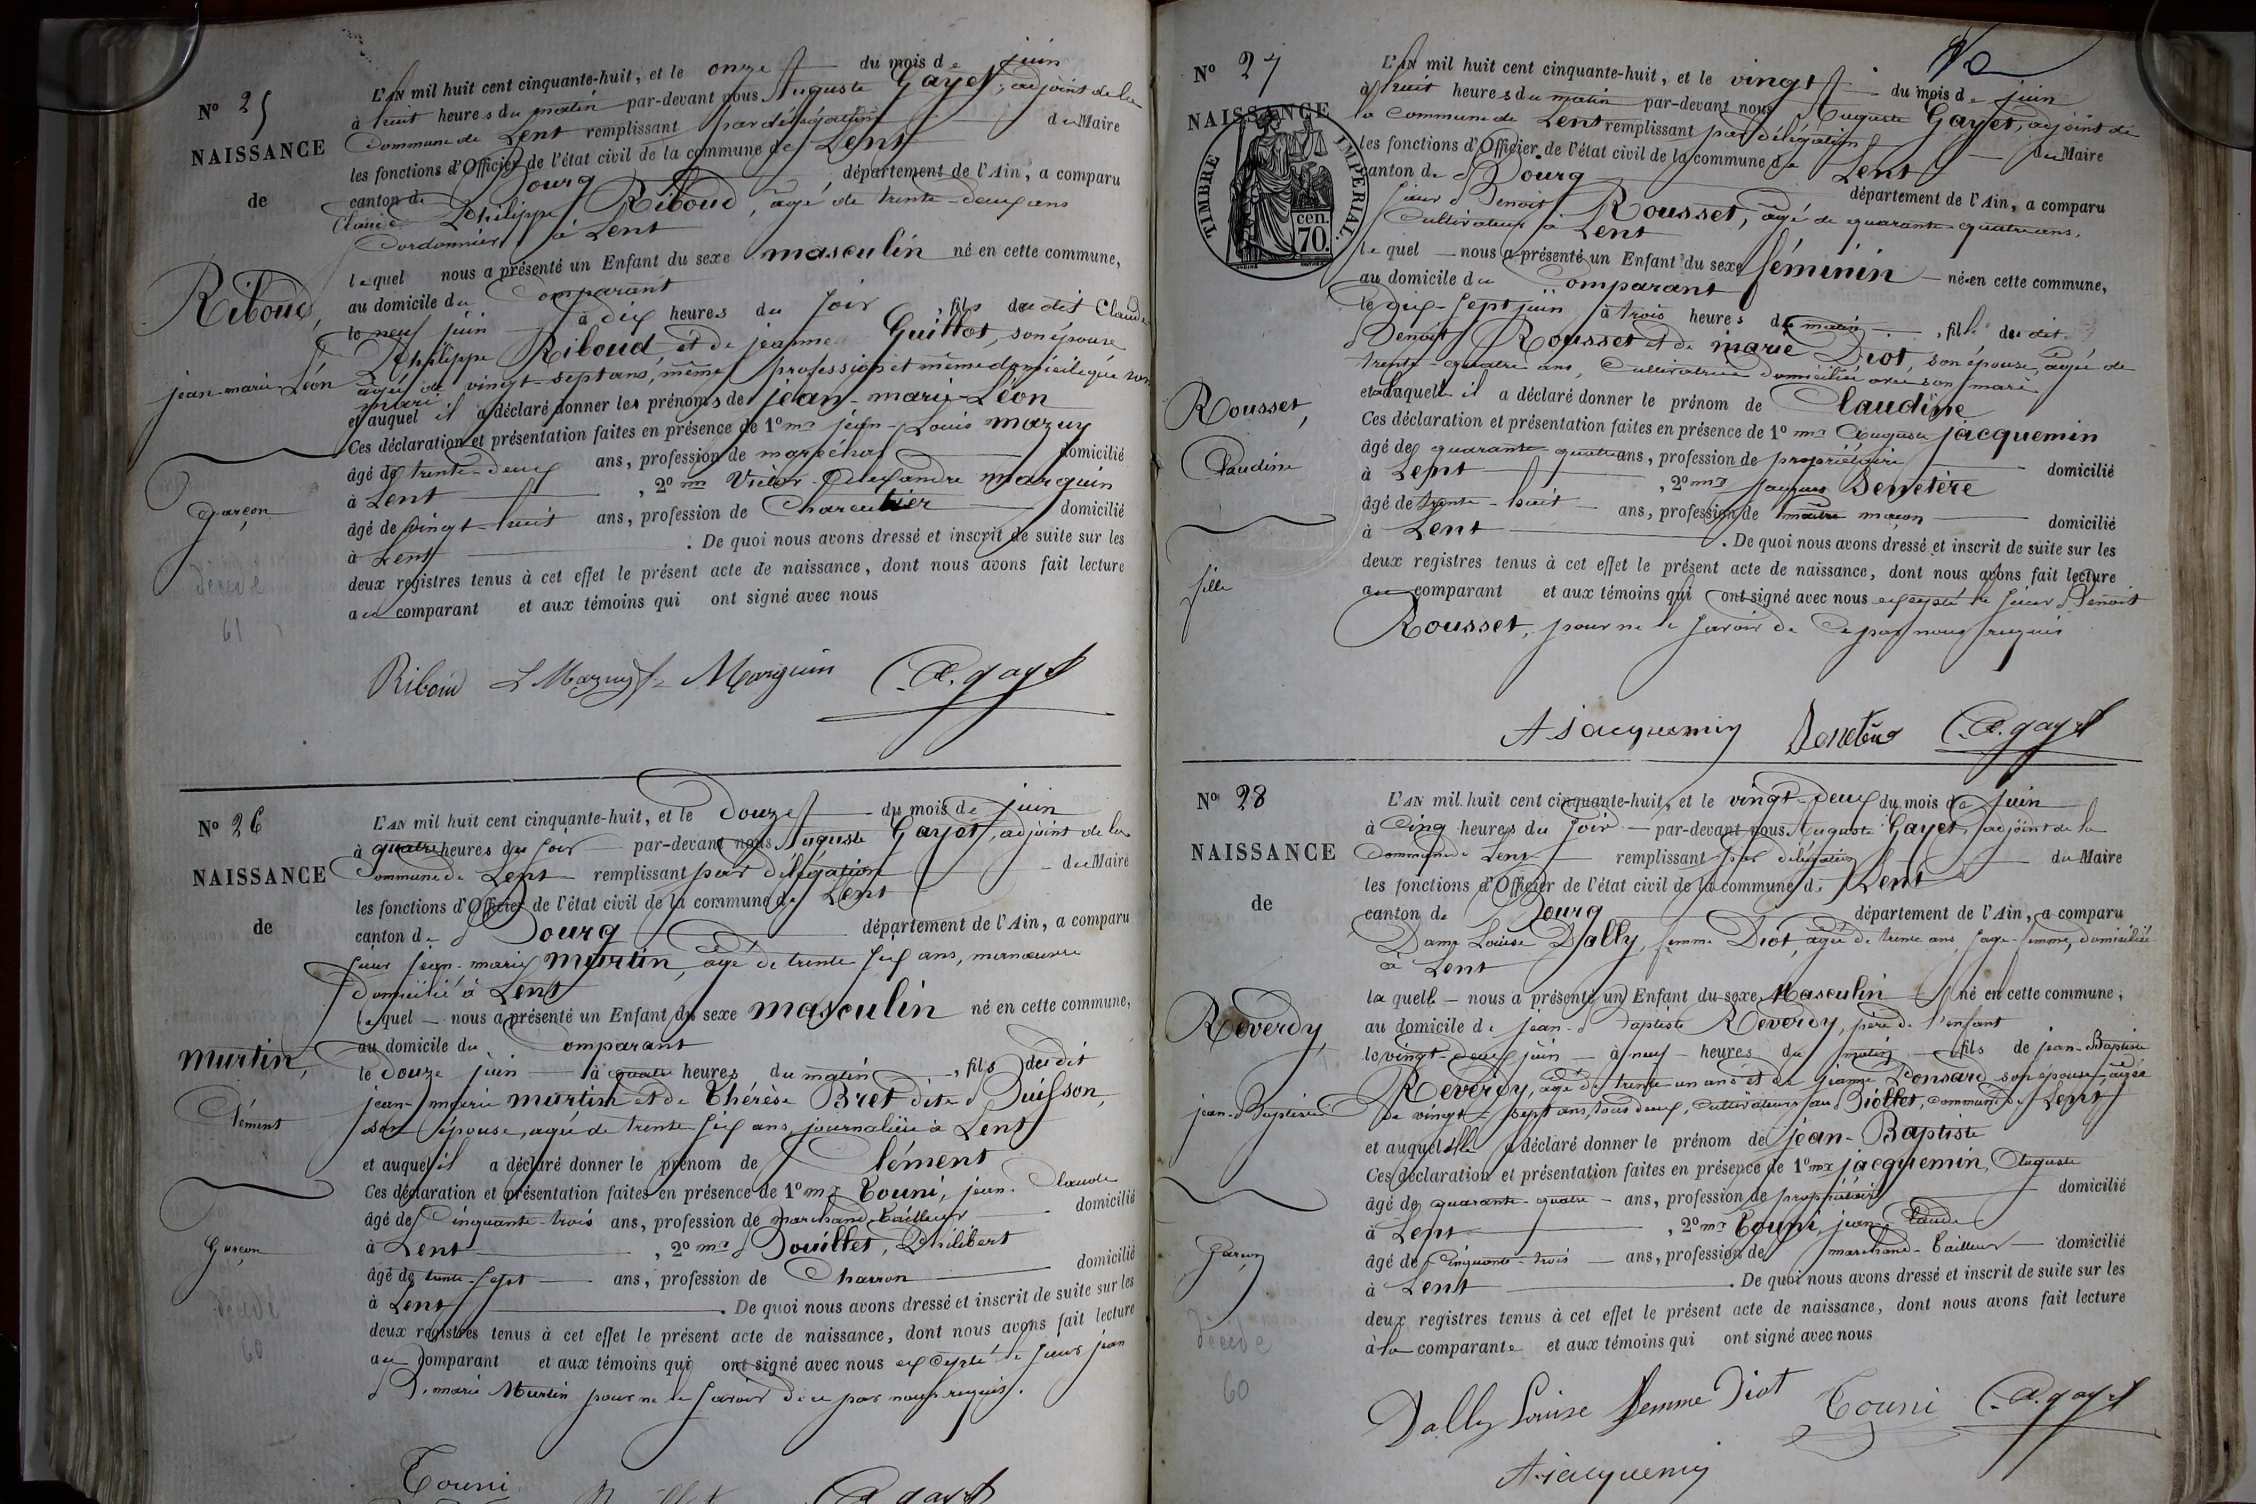 N° 25
NAISSANCE
de
Riboud,
jean-marie-Léon
garçon
décédé
61
L'AN mil huit cent cinquante-huit, et le onze du mois de juin
à huit heures du matin par-devant nous Auguste Gayet, adjoint de la
commune de Lent remplissant par délégation du Maire
les fonctions d'Officier de l'état civil de la commune de Lent
canton de Bourg, département de l'Ain, a comparu
Claude Philippe Riboud, âgé de trente-deux ans
Cordonnier à Lent
lequel nous a présenté un Enfant du sexe masculin né en cette commune,
au domicile du Comparant
le neuf juin à dix heures du soir, fils du dit Claude
Philippe Riboud et de jeanne Guillot, son épouse
âgée de vingt-sept ans, même profession et même domicile que son
mari
et auquel il a déclaré donner les prénoms de jean-marie-Léon
Ces déclaration et présentation faites en présence de 1° mr jean-Louis mazuy
âgé de trente-deux ans, profession de maréchal domicilié
à Lent, 2° mr Victor-Alexandre marguin
âgé de vingt-huit ans, profession de Charcutier domicilié
à Lent. De quoi nous avons dressé et inscrit de suite sur les
deux registres tenus à cet effet le présent acte de naissance, dont nous avons fait lecture
au comparant et aux témoins qui ont signé avec nous
Riboud L Mazuy Marguin A. gayet
N° 26
NAISSANCE
de
murtin,
Clément
Garçon
décédé
60
L'AN mil huit cent cinquante-huit, et le douze du mois de juin
à quatre heures du soir par-devant nous Auguste Gayet, adjoint de la
Commune de Lent remplissant par délégation du Maire
les fonctions d'Officier de l'état civil de la commune de Lent
canton de Bourg département de l'Ain, a comparu
sieur jean-marie murtin, âgé de trente six ans, manœuvre
domicilié à Lent
lequel nous a présenté un Enfant du sexe masculin né en cette commune,
au domicile du Comparant
le douze juin à quatre heures du matin, fils du dit
jean-marie murtin et de Thérèse Bret dite Buisson,
son épouse, âgée de trente six ans, journalière à Lent
et auquel il a déclaré donner le prénom de Clément
Ces déclaration et présentation faites en présence de 1° mr Touni, jean-Claude
âgé de Cinquante-trois ans, profession de marchand tailleur domicilié
à Lent, 2° mr Bouillet, Philibert
âgé de trente-sept ans, profession de Charron domicilié
à Lent. De quoi nous avons dressé et inscrit de suite sur les
deux registres tenus à cet effet le présent acte de naissance, dont nous avons fait lecture
au Comparant et aux témoins qui ont signé avec nous excepté le sieur jean
marie Murtin pour ne le savoir de ce par nous requis.
Touni
A. gayet
N° 27
NAISSANCE
TIMBRE IMPERIAL.
cen.
70.
Rousset,
Claudine
fille
L'AN mil huit cent cinquante-huit, et le vingt du mois de juin
à huit heures du matin par-devant nous Auguste Gayet, adjoint de
la Commune de Lent remplissant par délégation du Maire
les fonctions d'Officier de l'état civil de la commune de Lent
canton de Bourg département de l'Ain, a comparu
sieur Benoit Rousset, âgé de quarante-quatre ans,
Cultivateur à Lent
lequel nous a présenté un Enfant du sexe féminin née en cette commune,
au domicile du Comparant
le dix-sept juin à trois heures du matin, fille du dit
Benoit Rousset et de marie Diot, son épouse, âgée de
trente-quatre ans, Cultivatrice domiciliée avec son mari
et à laquelle il a déclaré donner le prénom de Claudine
Ces déclaration et présentation faites en présence de 1° mr Auguste jacquemin
âgé de quarante-quatre ans, profession de propriétaire domicilié
à Lent, 2° mr jacques Denetère
âgé de trente-huit ans, profession de maître maçon domicilié
à Lent. De quoi nous avons dressé et inscrit de suite sur les
deux registres tenus à cet effet le présent acte de naissance, dont nous avons fait lecture
au comparant et aux témoins qui ont signé avec nous excepté le sieur Benoit
Rousset, pour ne le savoir de ce par nous requis
A Jacquemin A. gayet
N° 28
NAISSANCE
de
Reverdy,
jean-Baptiste
garçon
décédé
60
L'AN mil huit cent cinquante-huit, et le vingt-deux du mois de juin
à Cinq heures du soir par-devant nous Auguste Gayet, adjoint de la
Commune de Lent remplissant par délégation du Maire
les fonctions d'Officier de l'état civil de la commune de Lent
canton de Bourg département de l'Ain, a comparu
Dame Louise Dally, femme Diot, âgée de trente ans, sage-femme, domiciliée
à Lent
laquelle nous a présenté un Enfant du sexe Masculin né en cette commune,
au domicile de jean-Baptiste Reverdy, père de l'enfant
le vingt-deux juin à neuf heures du matin fils de jean-Baptiste
Reverdy, âgé de trente un ans et de jeanne Ponsard son épouse, âgée
de vingt-sept ans, tous deux, Cultivateurs au Biollet, commune de Lent
et auquel elle a déclaré donner le prénom de jean-Baptiste
Ces déclaration et présentation faites en présence de 1° mr jacquemin, Auguste
âgé de quarante-quatre ans, profession de propriétaire domicilié
à Lent, 2° mr Touni, jean-Claude
âgé de Cinquante-trois ans, profession de marchand-tailleur domicilié
à Lent. De quoi nous avons dressé et inscrit de suite sur les
deux registres tenus à cet effet le présent acte de naissance, dont nous avons fait lecture
à la comparante et aux témoins qui ont signé avec nous
Dally Louise femme Diot Touni A. gayet
A Jacquemin